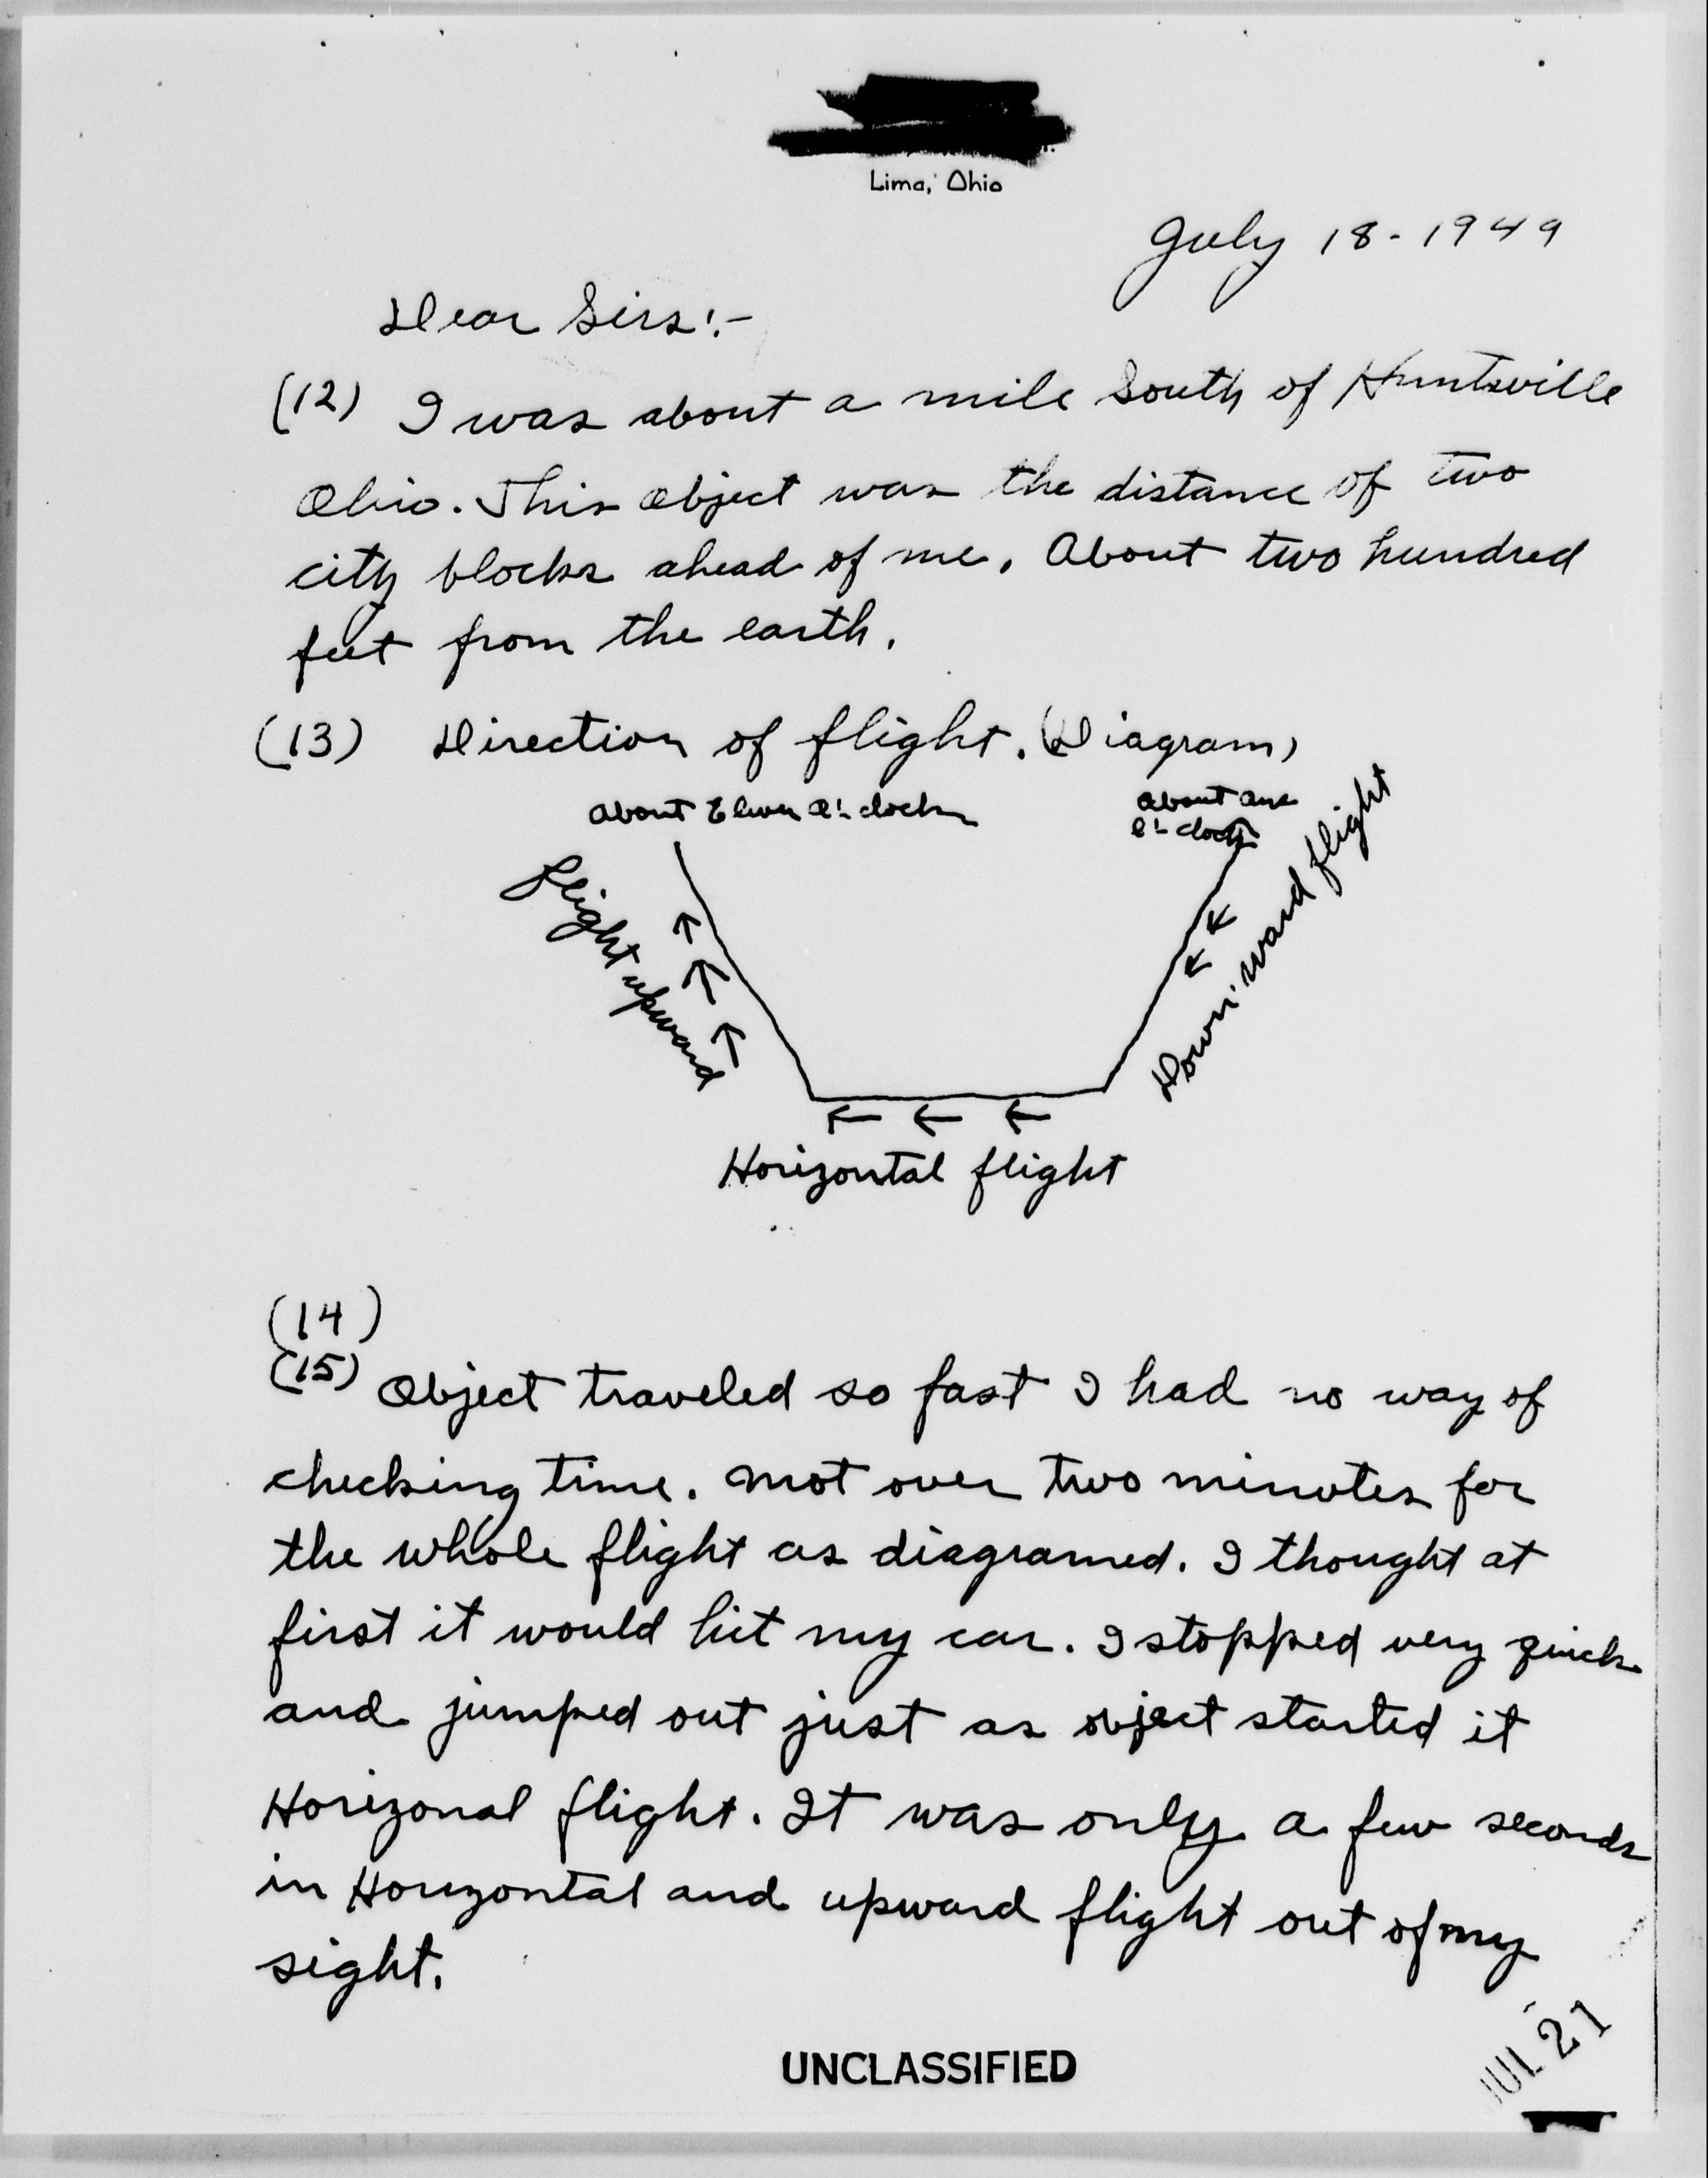 Lima, Ohio
July 18-1949
Dear Sirs:-
(12) I was about a mile South of Huntsville
Ohio. This object was the distance of two
city blocks ahead of me. About two hundred
feet from the earth.
(13) Direction of flight. (Diagram)
About Eleven O'-clock
About one
O'-clock
Flight upward
Down-ward flight
Horizontal flight
(14)
(15) Object traveled so fast I had no way of
checking time. Not over two minutes for
the whole flight as diagramed. I thought at
first it would hit my car. I stopped very quick
and jumped out just as object started it
Horizonal flight. It was only a few seconds
in Horizontal and upward flight out of my
sight.
UNCLASSIFIED
JUL 21